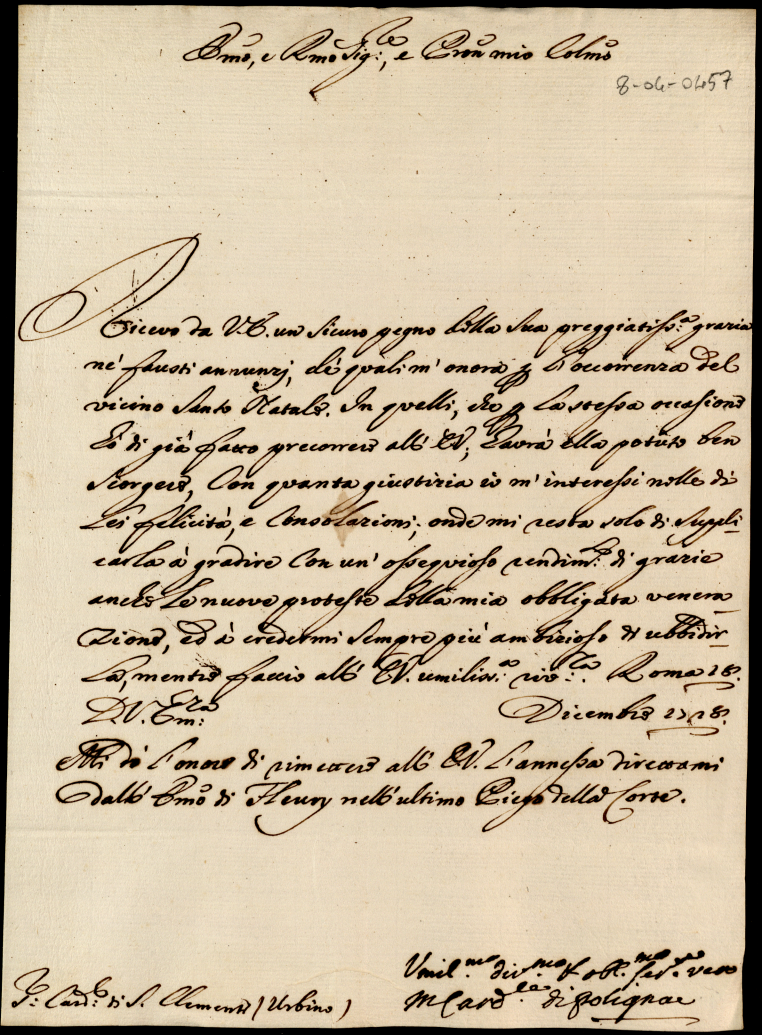 Emo, e Rmo Sig.re, e Pron mio Colmo
8-04-0457
Ricevo da V.E. un sicuro pegno della sua preggiatiss.a grazia
ne' fausti annunzj, de' quali m'onora p l'occorrenza del
vicino Santo Natale. In quelli, che p la stessa occasione
hò di già fatto precorrere all'EV, havrà ella potuto ben
scorgere, con quanta giustizia io m'interessi nelle di
Lei felicità, e consolazioni; onde mi resta solo di suppli-
carla à gradire con un' ossequioso rendim.to di grazie
anche le nuove proteste della mia obbligata venera-
zione, ed à credermi sempre più ambizioso di ubbidir-
la, mentre faccio all'EV. umiliss.a riv.za. Roma 28.
D.V. Em.za Dicembre 1728.
Mi dò l'onore di rimettere all'EV. l'annessa direttami
dall'Emo di Fleury nell'ultimo Piego della Corte.
Umil.mo div.mo & obl.mo ser.re vero
S.r Card.le di S. Clemente (Urbino) M Card.le di Polignac